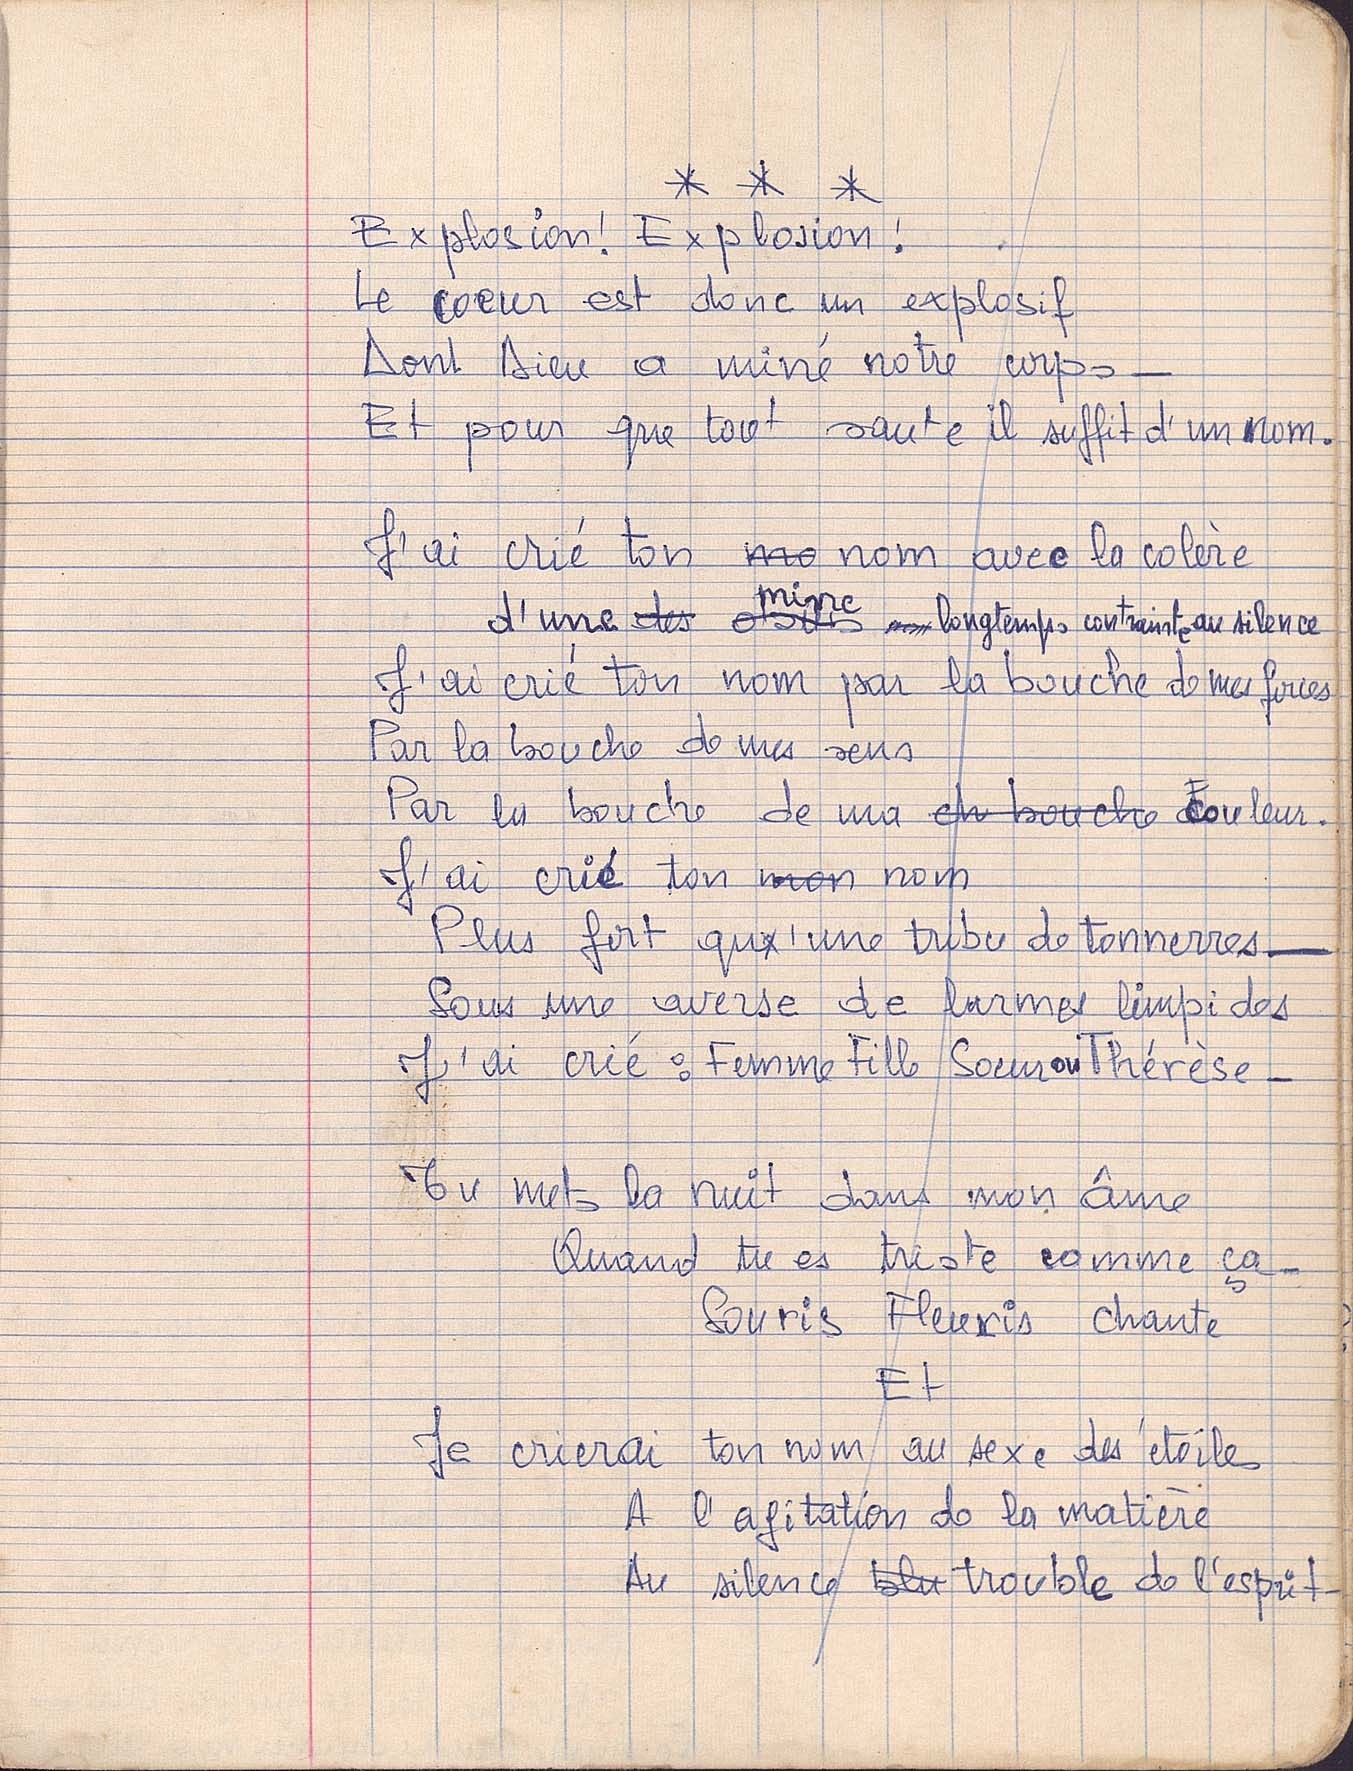 * * *
Explosion! Explosion!
Le coeur est donc un explosif
Dont Dieu a miné notre corps —
Et pour que tout saute il suffit d'un nom.
J'ai crié ton mo nom avec la colère
mine
d'une des longtemps contrainte au silence
J'ai crié ton nom par la bouche de mes forces
Par la bouche de mes sens
Par la bouche de ma ch bouche Couleur.
J'ai crié ton mon nom
Plus fort qu'une tribu de tonnerres —
Sous une averse de larmes limpides
J'ai crié : Femme Fille Soeur ou Thérèse —
Tu mets la nuit dans mon âme
Quand tu es triste comme ça —
Souris Fleuris chante
Et
Je crierai ton nom au sexe des étoiles
A l'agitation de la matière
Au silence blu trouble de l'esprit —